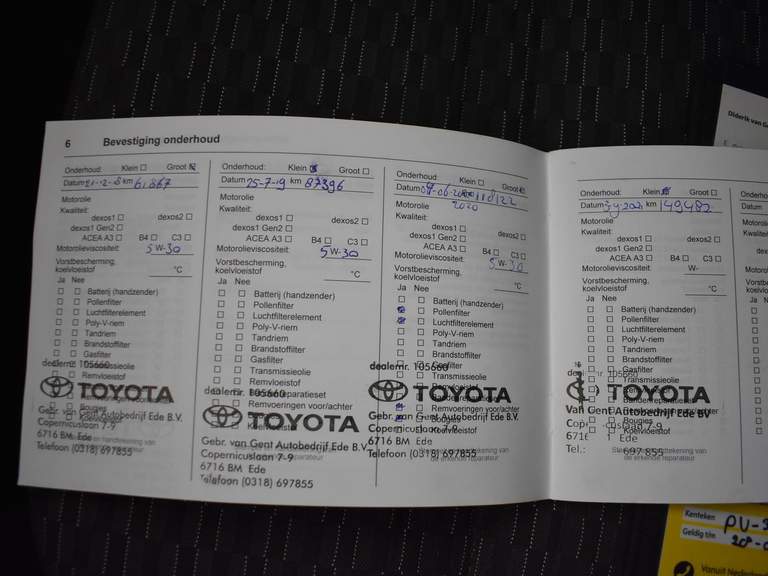 6 Bevestiging onderhoud
Onderhoud: Klein Groot
Datum 21-12-18 km 61867
Motorolie
Kwaliteit:
dexos1 dexos2
dexos1 Gen2
ACEA A3 B4 C3
Motorolieviscositeit: 5 W-30
Vorstbescherming,
koelvloeistof °C
Ja Nee
Batterij (handzender)
Pollenfilter
Luchtfilterelement
Poly-V-riem
Tandriem
Brandstoffilter
Gasfilter
dealernr. 105660
TOYOTA
Gebr. van Gent Autobedrijf Ede B.V.
Copernicuslaan 7-9
6716 BM Ede
Telefoon (0318) 697855
Onderhoud: Klein Groot
Datum 25-7-19 km 87396
Motorolie
Kwaliteit:
dexos1 dexos2
dexos1 Gen2
ACEA A3 B4 C3
Motorolieviscositeit: 5 W-30
Vorstbescherming,
koelvloeistof °C
Ja Nee
Batterij (handzender)
Pollenfilter
Luchtfilterelement
Poly-V-riem
Tandriem
Brandstoffilter
Gasfilter
Transmissieolie
Remvloeistof
dealernr. 105660
TOYOTA
Remvoeringen voor/achter
Gebr. van Gent Autobedrijf Ede B.V.
Copernicuslaan 7-9
6716 BM Ede
Telefoon (0318) 697855
Onderhoud: Klein Groot
Datum km 118122
2020
Motorolie
Kwaliteit:
dexos1 dexos2
dexos1 Gen2
ACEA A3 B4 C3
Motorolieviscositeit: 5 W-30
Vorstbescherming,
koelvloeistof °C
Ja Nee
Batterij (handzender)
Pollenfilter
Luchtfilterelement
Poly-V-riem
Tandriem
Brandstoffilter
Gasfilter
dealernr. 105660
Transmissieolie
TOYOTA
Remvoeringen voor/achter
Bougies
Gebr. van Gent Autobedrijf Ede B.V.
Koelvloeistof
Copernicuslaan 7-9
6716 BM Ede
Telefoon (0318) 697855
Onderhoud: Klein Groot
Datum km 149482
Motorolie
Kwaliteit:
dexos1 dexos2
dexos1 Gen2
ACEA A3 B4 C3
Motorolieviscositeit: W-
Vorstbescherming,
koelvloeistof °C
Ja Nee
Batterij (handzender)
Pollenfilter
Luchtfilterelement
Poly-V-riem
Tandriem
Brandstoffilter
Gasfilter
105660
Transmissieolie
Remvloeistof
TOYOTA
Remvoeringen voor/achter
Van Gent Autobedrijf Ede BV
Bougies
Koelvloeistof
Ede
Tel.: 697 855
Diderik van G
Kenteken PU-
Geldig t/m
Vanuit Nederland